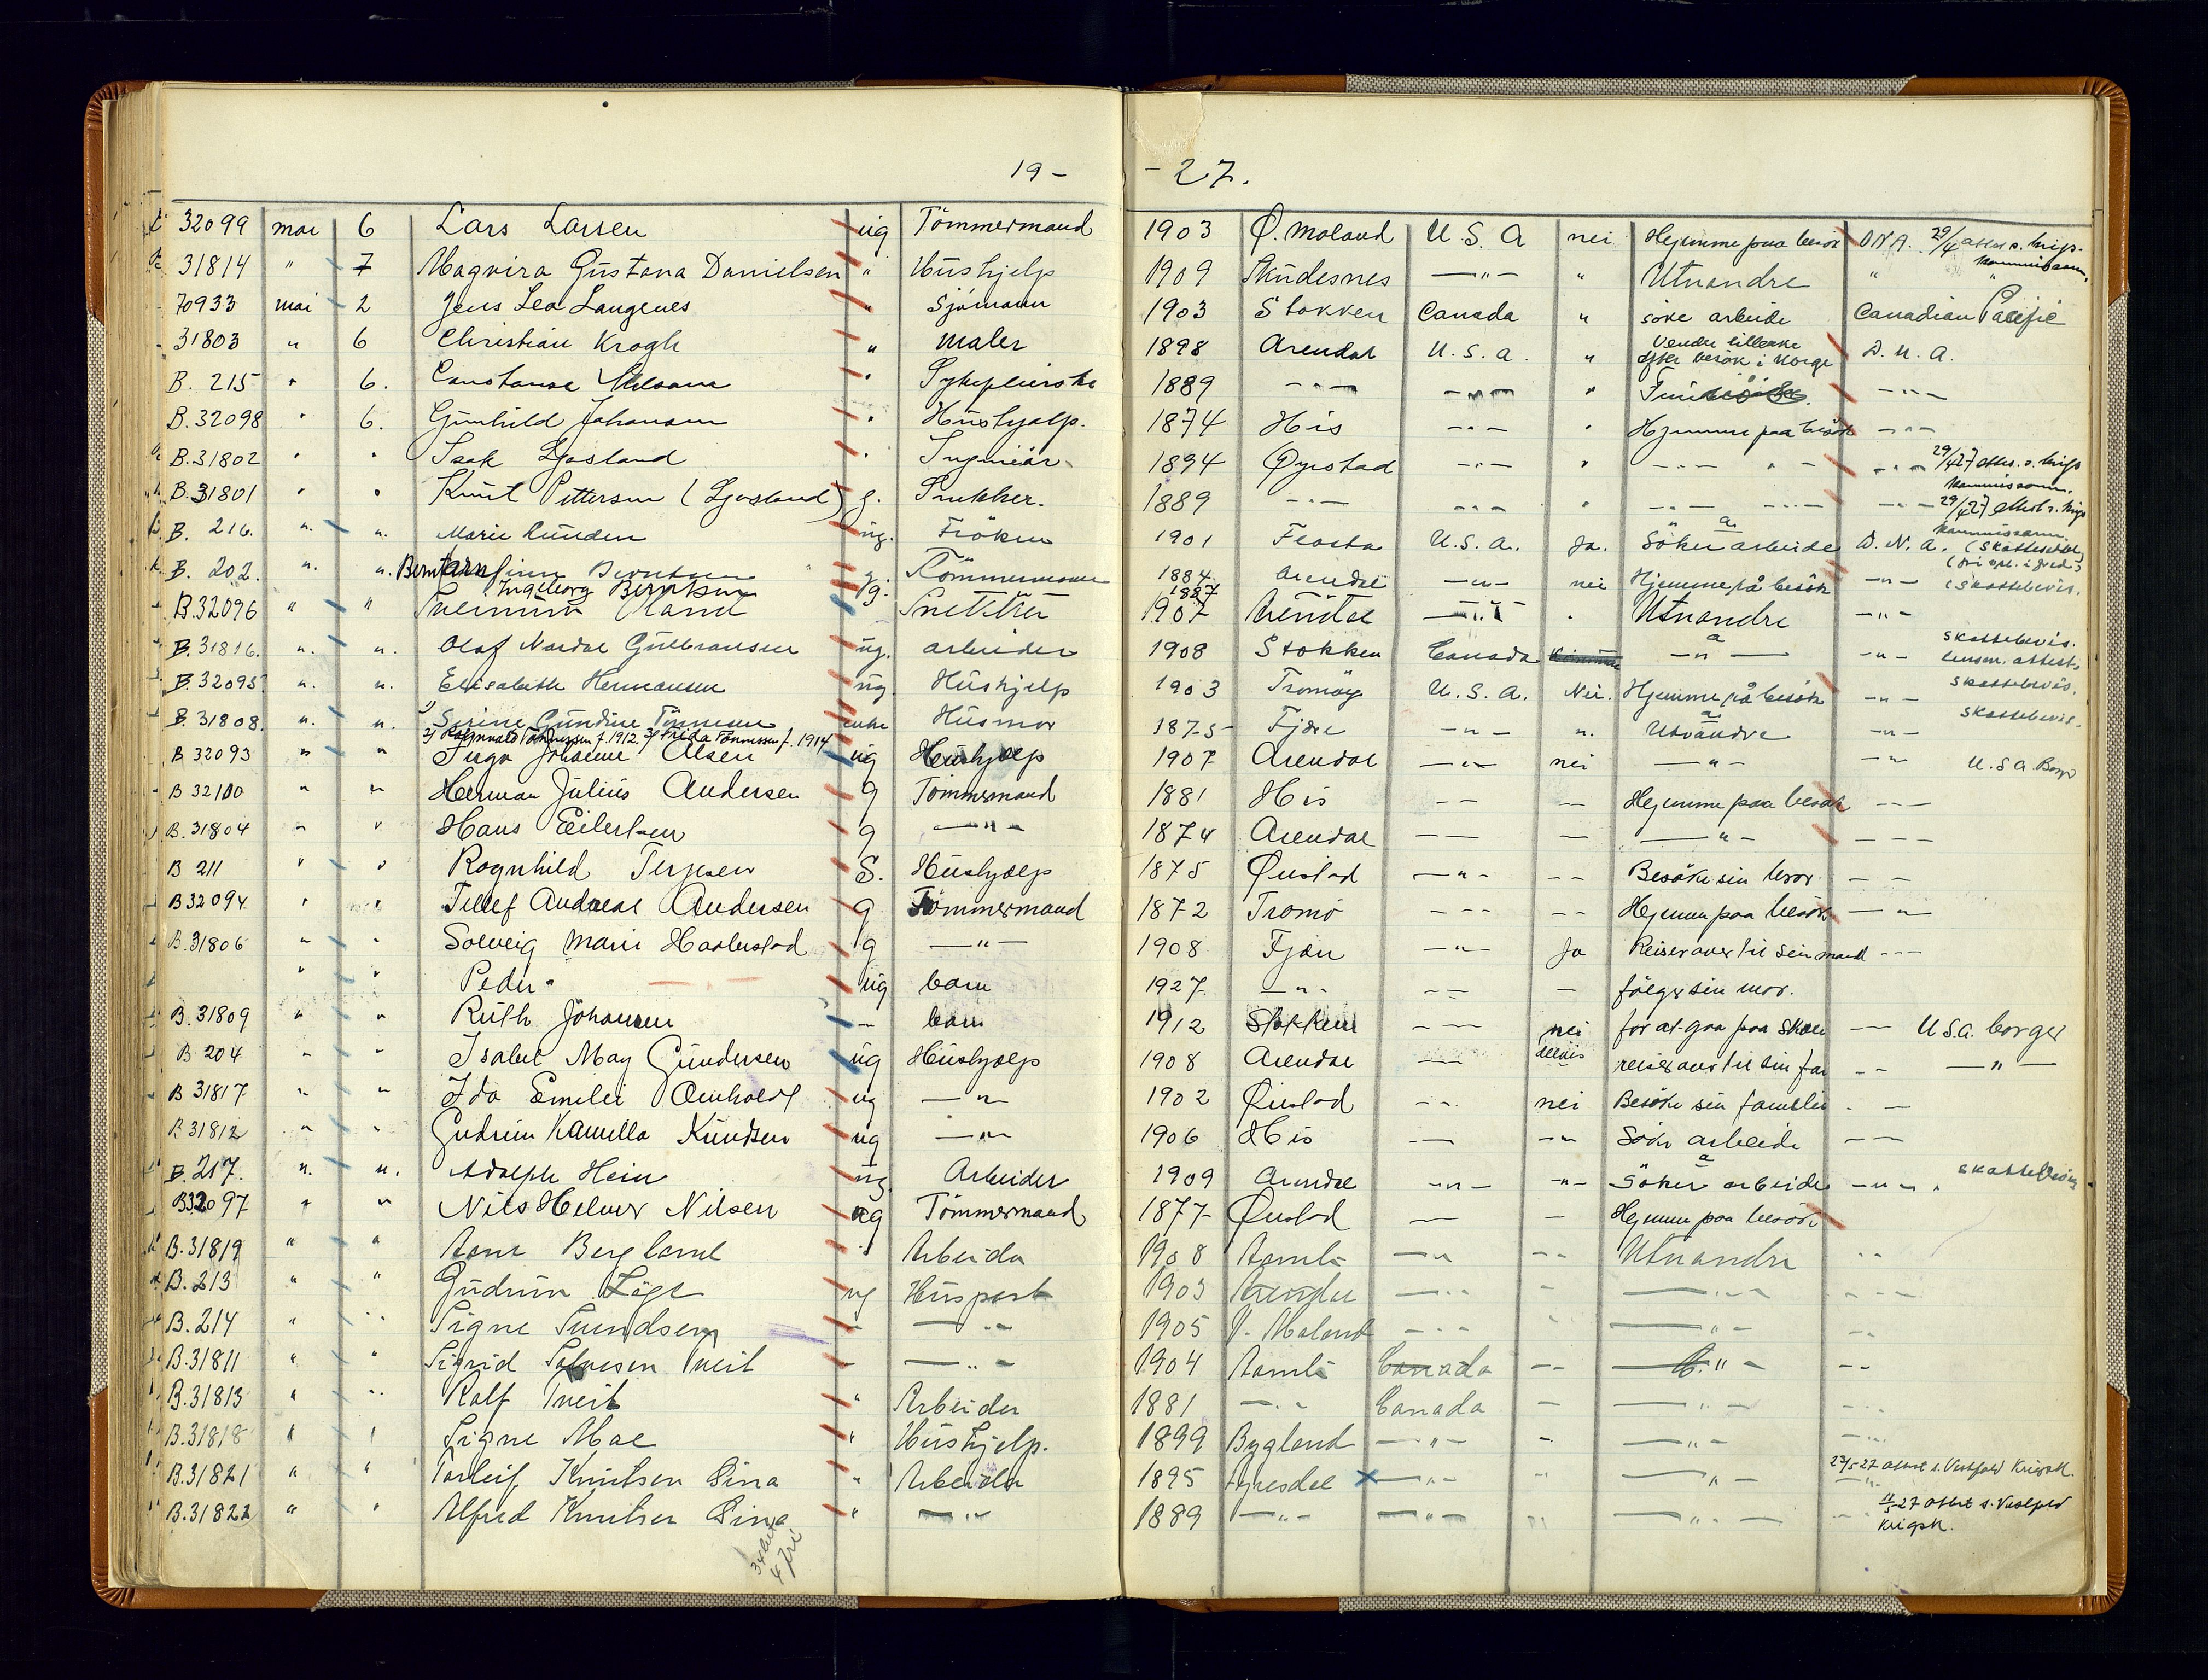 19 - - 27.
32099 mai 6 Lars Larsen ug Tömmermand 1903 Ø. Moland U. S. A nei Hejemme paa besök D.N.A. 29/4 attest s. krigs-kommissær.
31814 " 7 Magvira Gustava Danielsen " Hushjelp 1909 Skudesnes —"— " Utvandre " "
70933 mai 2 Jens Lea Langenes " Sjömann 1903 Stokken Canada " söke arbeide Canadian Pacific
31803 " 6 Christian Krogh " maler 1898 Arendal U.S.A. " Vendre tilbake efter besök i Norge D.N.A.
B. 215 " 6. Constanse " Sykepleierske 1889 —"— —"— " —"—
B.32098 " 6. Gunhild Johansen " Hushjælp. 1874 His —"— " Hjemme paa besök —"—
B.31802 " " Isak Ljosland " Ingeniör 1894 Øyestad —"— " —"— —"— 29/4 27 attes. s. krigs kommissær.
B.31801 " " Knut Pettersen (Ljosland) g. Snekker. 1889 —"— —"— " —"— —"— 29/4 27 attest s. krigs kommissær.
B. 216. " " Marie Knudsen ug. Fröken 1901 Flosta U.S.A. Ja. Söker arbeide D.N.A. (Skatteseddel
B. 202. " " Berntsen g. Tömmermann 1884 Arendal —"— nei Hjemme på besök —"— (Skattebevis.
Ingeborg Berntsen g. 1887
B.32096 " " Snekker 1907 Arendal —"— " Utvandre —"—
B.31816. " " Olaf Nordal Gulbransen ug. arbeider 1908 Stokken Canada —"— —"— skattebevis. lensm. attest.
B.32095. " " Elisabeth Hermansen ug. Hushjelp 1903 Tromöy U.S.A. Nei. Hjemme på besök —"— Skattebevis.
B.31808. " " 1) Serine Gundine Tönnesen enke Husmor 1875 Fjære —"— " Utvandre —"— Skattebevis.
2) Ragnvald Tönnessen f. 1912. 3) Frida Tönnessen f. 1914
B 32093 " " Inga Johanne Olsen ug Hushjælp 1907 Arendal —"— nei —"— —"— U.S.A. Borg
B 32100 " " Herman Julius Andersen g Tömmermand 1881 His — — — — Hejemme paa besök — — —
B.31804 " " Hans Eilertsen g —"— 1874 Arendal — — — —"— — — —
B 211 " " Ragnhild Terjesen S. Hushjælp 1875 Øiestad —"— — — Besöke sin bror — —
B32094 " " Tellef Andreas Andersen g Tömmermand 1872 Tromö — — — — — Hejemme paa besök —"—
B.31806 " " Solveig Marie Haabestad g —"— 1908 Fjære —"— Ja Reiser over til sin mand — — —
" " Peder " ug barn 1927 —"— — — — fölger sin mor.
B.31809 " " Ruth Johansen — barn 1912 Stokken — — — nei for at gaa paa skole — — U.S.A. borger
B 204 " " Isabel May Gundersen ug Hushjælp 1908 Arendal — delvis reiser over til sin far — — —"—
B 31817 " " Ida Emilie ug —"— 1902 Øiestad — — nei Besöke sin familie — —
B 31812 " " Gudrun Kamilla Knudsen ug —"— 1906 His — —"— Söke arbeide — —
B.217. " " Adolph Hein ug. Arbeider 1909 Arendal —"— —"— Söker arbeide —"— skattebevis
B32097 " " Nils Helmer Nilsen ug Tömmermand 1877 Øiestad — — Hejemme paa besök
B.31819 " " Bergland " Arbeider 1908 Aamli —"— — — Utvandre " "
B.213 " " Gudrun Løge ug Huspost 1903 Arendal —"— — —"— — — —
B.214 " " Signe Svendsen — —"— 1905 V. Moland —"— " —"— — —
B.31811 " " Sigrid Salvesen Tveit — —"— 1904 Aamli Canada — — —"— — —
B.31813 " " Rolf Tveit " Arbeider 1881 —"— Canada — —"— —"—
B.31818 " " Signe Moe " Hushjelp. 1899 Bygland —"— — —"— —"—
B.31821 " " Torleif Knutsen Sina " Arbeider 1895 Fyresdal x —"— " —"— 23/5-27 attest s. Vestfold Krigsk.
B.31822 " " Alfred Knutsen Sina " —"— 1889 —"— —"— " —"— 11/5-27 attest s. Vestfold Krigsk.